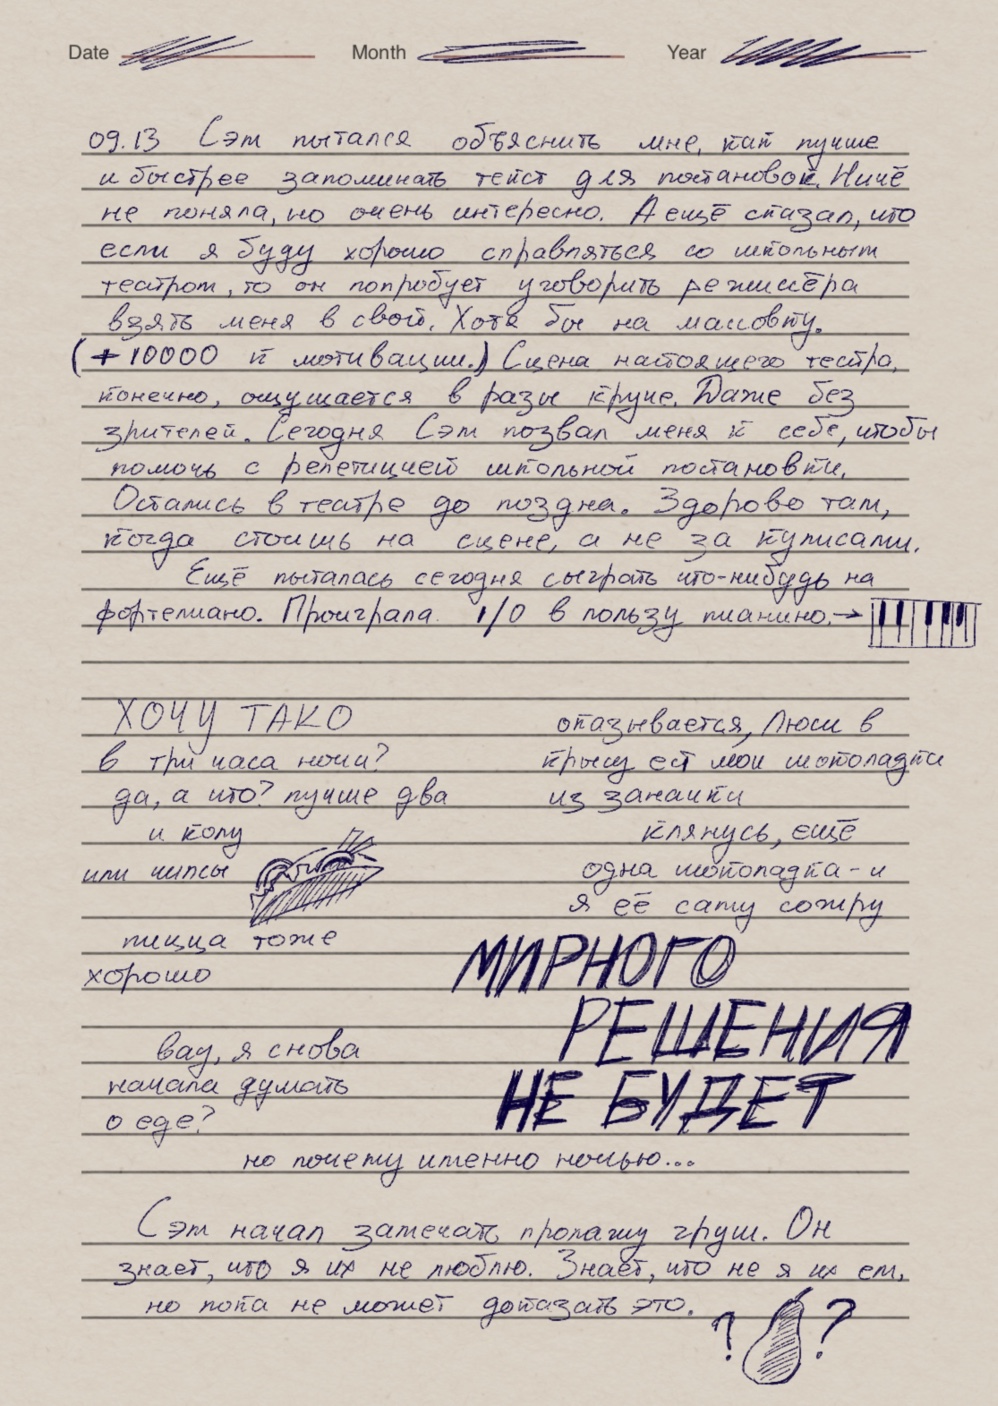 Date Month Year
09.13 Сэм пытался объяснить мне, как лучше
и быстрее запоминать текст для постановок. Ничё
не поняла, но очень интересно. А ещё сказал, что
если я буду хорошо справляться со школьным
театром, то он попробует уговорить режиссёра
взять меня в свой. Хотя бы на массовку.
(+10000 к мотивации.) Сцена настоящего театра,
конечно, ощущается в разы круче. Даже без
зрителей. Сегодня Сэм позвал меня к себе, чтобы
помочь с репетицией школьной постановки.
Остались в театре до поздна. Здорово там,
когда стоишь на сцене, а не за кулисами.
Ещё пыталась сегодня сыграть что-нибудь на
фортепиано. Проиграла. 1/0 в пользу пианино.→
ХОЧУ ТАКО
в три часа ночи?
да, а что? лучше два
и колу
или чипсы
пицца тоже
хорошо
вау, я снова
начала думать
о еде?
но почему именно ночью...
оказывается, Люси в
крысу ест мои шоколадки
из заначки
клянусь, ещё
одна шоколадка - и
я её саму сожру
МИРНОГО
РЕШЕНИЯ
НЕ БУДЕТ
Сэм начал замечать пропажу груш. Он
знает, что я их не люблю. Знает, что не я их ем,
но пока не может доказать это.
? ?